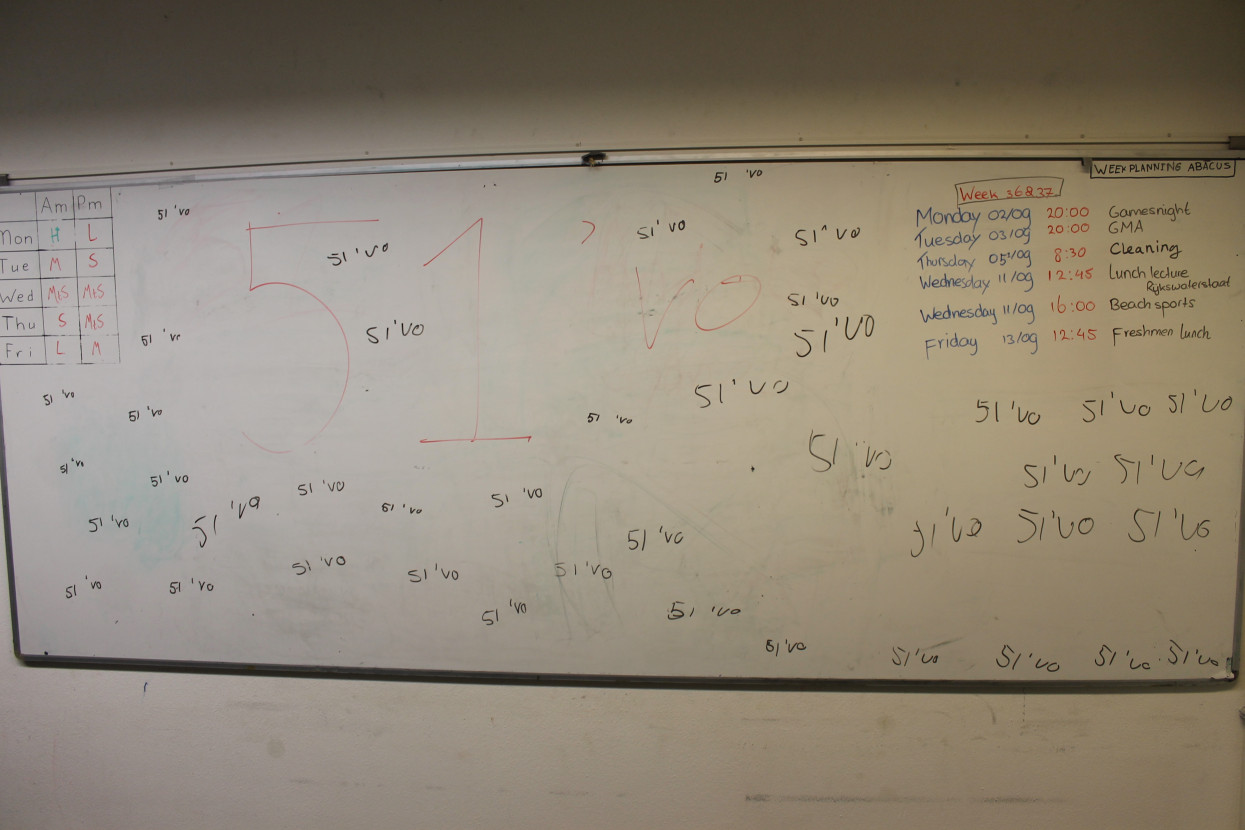 WEEKPLANNING ABACUS
Week 36&37
Monday 02/09 20:00 Gamesnight
Tuesday 03/09 20:00 GMA
Thursday 05/09 8:30 Cleaning
Wednesday 11/09 12:45 Lunch lecture
Rijkswaterstaat
Wednesday 11/09 16:00 Beach sports
Friday 13/09 12:45 Freshmen lunch
Am Pm
Mon H L
Tue M S
Wed M+S M+S
Thu S M+S
Fri L M
51'vo
51 'vo
51'vo
51'vo
51'vo
51'vo
51'vo
51'vo
51'vo
51'vo
51'vo
51'vo
51'vo
51'vo
51'vo 51'vo 51'vo
51'vo
51'vo
51'vo 51'vo
51'vo
51'vo
51'vo
51'vo
51'vo
51'vo
51'vo 51'vo 51'vo
51'vo
51'vo
51'vo
51'vo
51'vo
51'vo
51'vo
51'vo
51'vo
51'vo
51'vo 51'vo 51'vo 51'vo